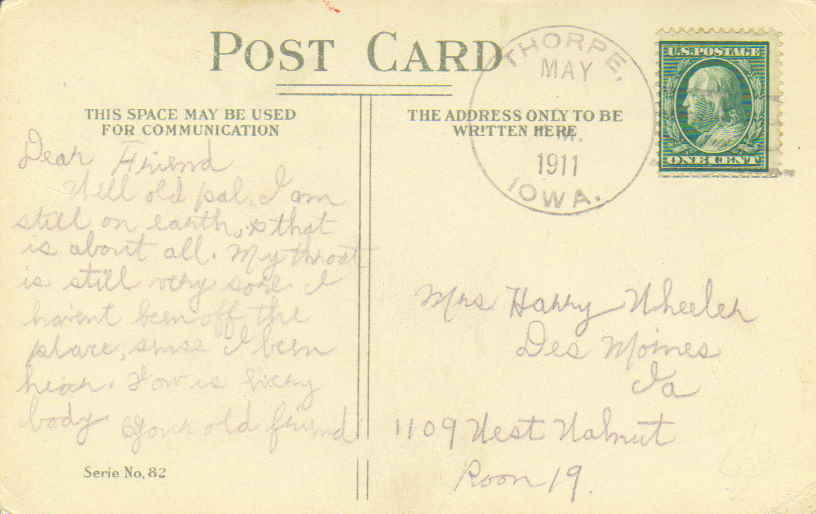 POST CARD
THORPE,
MAY
M.
1911
IOWA.
U.S. POSTAGE
ONE CENT
THIS SPACE MAY BE USED
FOR COMMUNICATION
THE ADDRESS ONLY TO BE
WRITTEN HERE
Dear Friend
Well old pal, I am
still on earth, & that
is about all. My throat
is still very sore I
havent been off the
place, since I been
hear. How is every
body. Your old friend
Serie No. 82
Mrs Harry Wheeler
Des Moines
Ia
1109 West Walnut
Room 19.